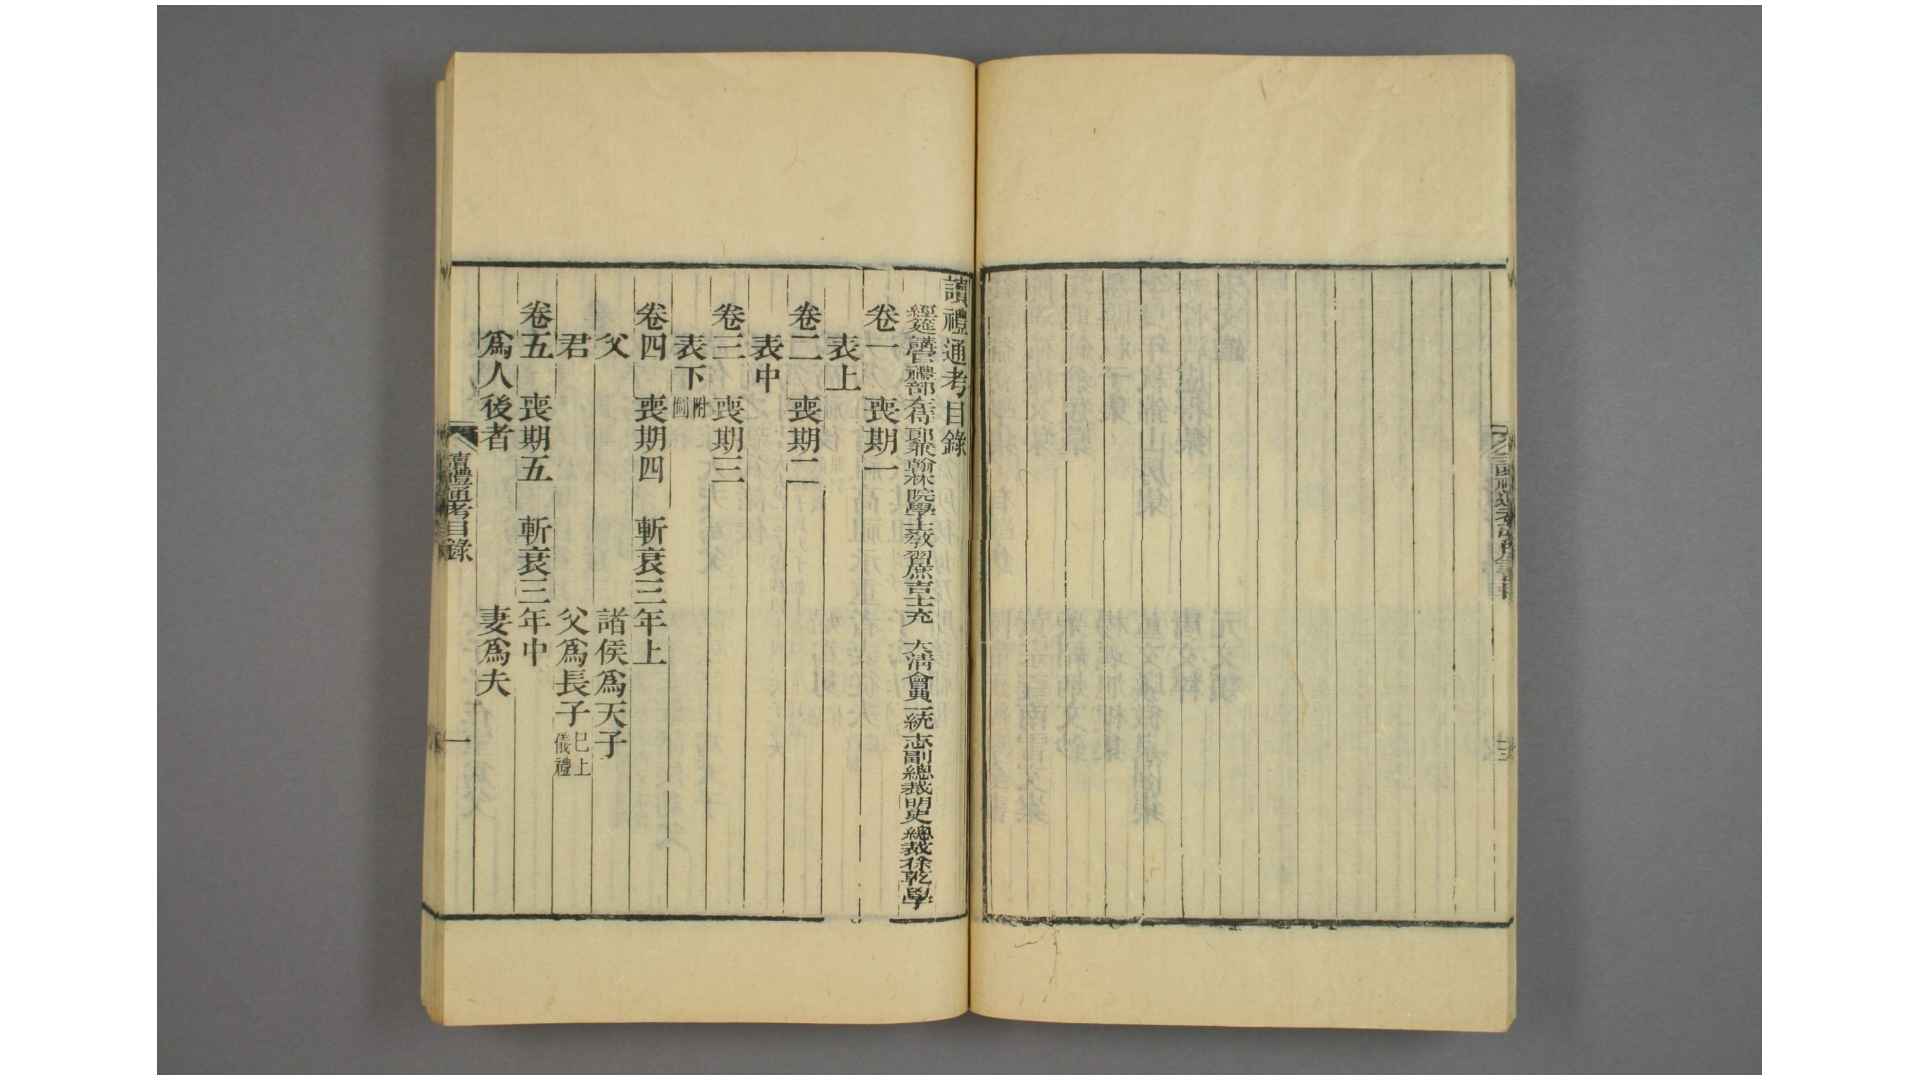 讀禮通考目錄
經筵講官禮部左侍郎兼翰林院學士教習庶吉士充　大清會典一統志副總裁明史總裁徐乾學
卷一　喪期一
表上
卷二　喪期二
表中
卷三　喪期三
表下附圖
卷四　喪期四　斬衰三年上
父　諸侯爲天子
君　父爲長子已上儀禮
卷五　喪期五　斬衰三年中
爲人後者　妻爲夫
讀禮通考目錄　一